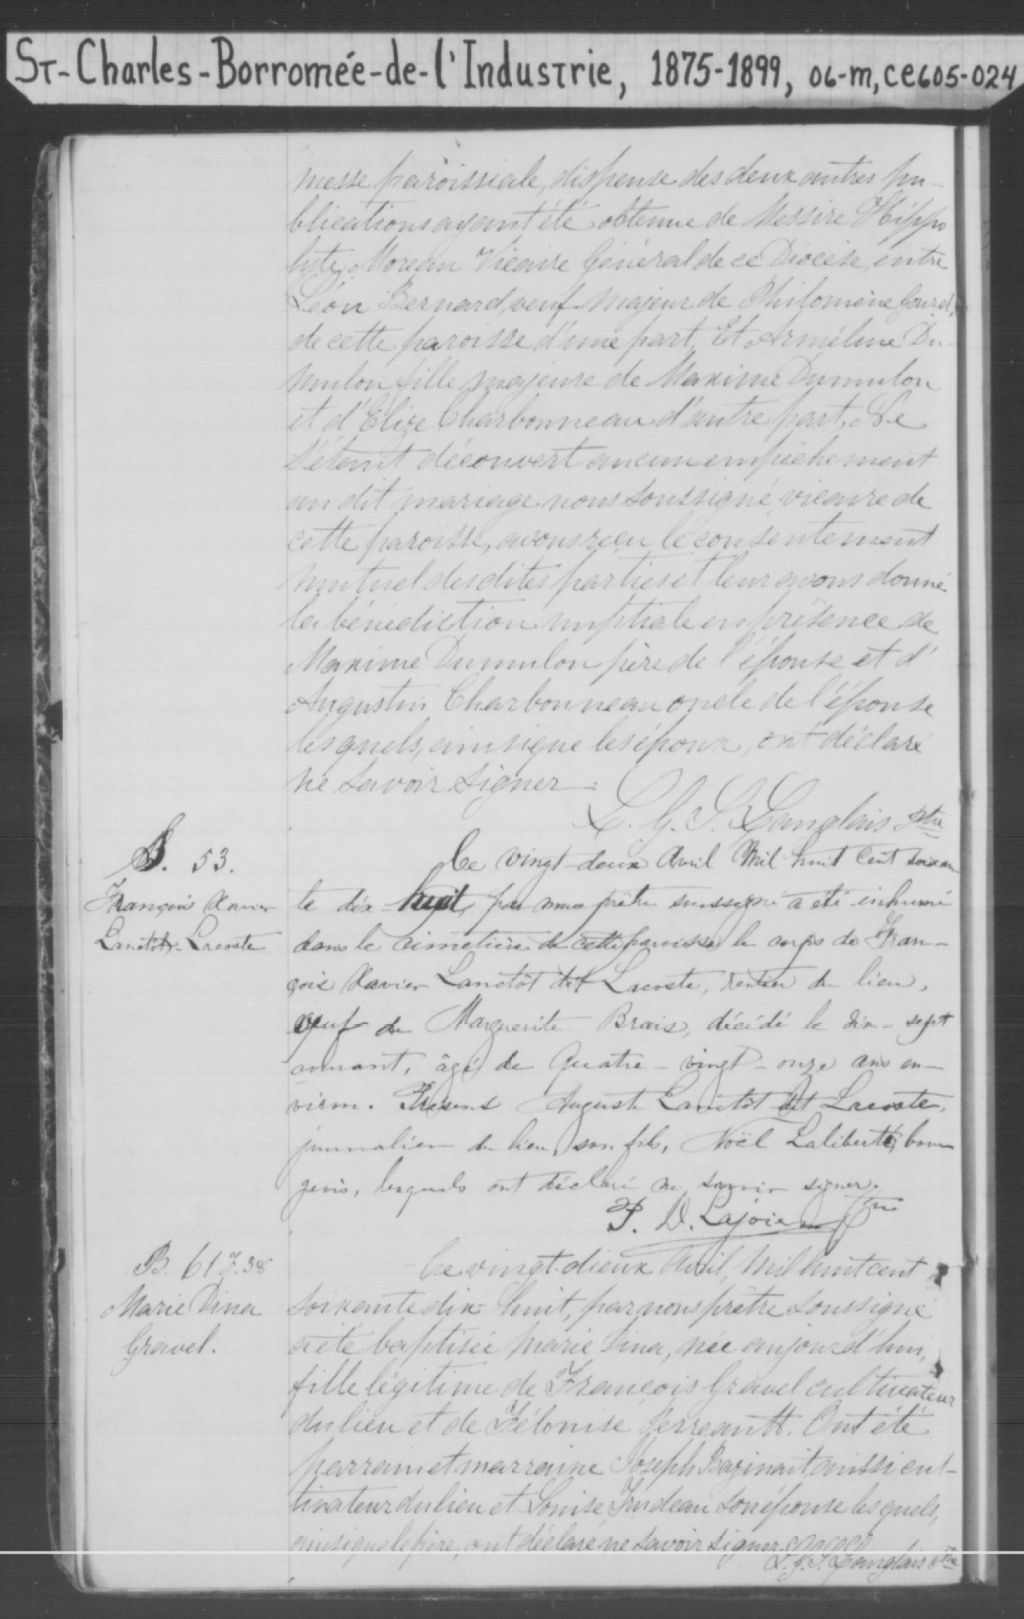 St-Charles-Borromée-de-l'Industrie, 1875-1899, 06-m, CE605-024
messe paroissiale, dispense des deux autres pu-
blications ayant été obtenue de Messire Hippo
lyte Moreau Vicaire Général de ce Diocèse, entre
Léon Bernard, veuf majeur de Philomène
de cette paroisse d'une part, Et Arméline Du-
mulon fille majeure de Maxime Dumulon
et d'Elize Charbonneau d'autre part, Ne
s'étant découvert aucun empêchement
au dit mariage nous soussigné, vicaire de
cette paroisse, avons reçu le consentement
mutuel des dites parties et leur avons donné
la bénédiction nuptiale en présence de
Maxime Dumulon père de l'épouse et d'
Augustin Charbonneau oncle de l'épouse
lesquels, ainsi que les époux, ont déclaré
ne savoir signer.
L. J. S. Langlais Ptre
S. 53.
François Xavier
Lanctôt Lacoste
Ce vingt-deux Avril Mil huit Cent soixan
te dix-huit, par nous prêtre soussigné a été inhumé
dans le cimetière de cette paroisse le corps de Fran-
çois Xavier Lanctôt dit Lacoste, rentier du lieu,
veuf de Marguerite Brais, décédé le dix-sept
courant, âgé de Quatre-vingt-onze ans en-
viron. Présens Auguste Lanctôt dit Lacoste,
journalier du lieu, son fils, Noël Laliberté, bour
geois, lesquels ont déclaré ne savoir signer.
P. D. Lajoie Ptre
B. 61 F. 38
Marie Dina
Gravel.
Ce vingt-dieux Avril, Mil huit cent
soixante dix-huit, par nous prêtre soussigné
a été baptisée Marie Dina, née aujourd'hui,
fille légitime de François Gravel cultivateur
du lieu et de Félonise Perreault. Ont été
parrain et marraine Joseph Bazinait, aussi cul-
tivateur du lieu et Louise Trudeau son épouse lesquels,
ainsi que le père, ont déclaré ne savoir signer.
L. J. S. Langlais Ptre